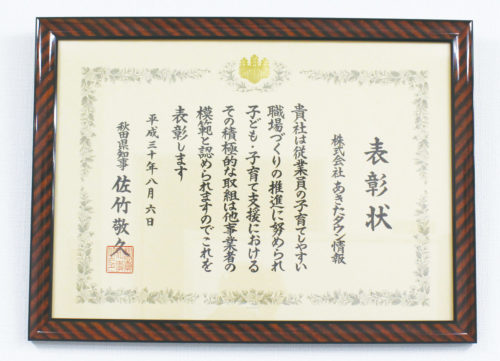 表彰状
株式会社 あきたタウン情報
貴社は従業員の子育てしやすい
職場づくりの推進に努められ
子ども・子育て支援における
その積極的な取組は他事業者の
模範と認められますのでこれを
表彰します
平成三十年八月六日
秋田県知事 佐竹敬久